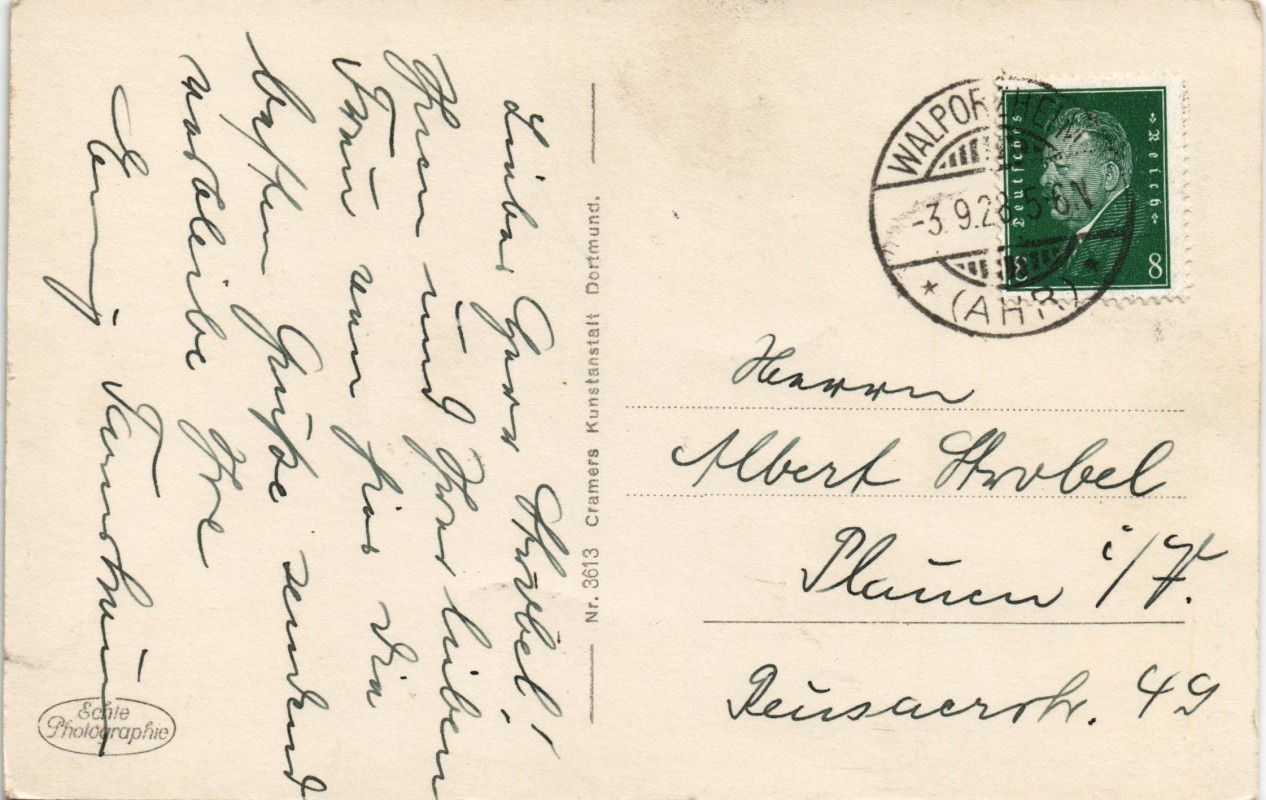 Lieber Herr Strobel!
Ihnen und Ihrer lieben
Frau von hier die
besten Grüße sendend
verbleibe Ihr
Nr. 3613 Cramers Kunstanstalt Dortmund.
Echte
Photographie
WALPORZHEIM
-3.9.28 5-6 N
* (AHR) *
Deutsches
Reich
8
8
Herrn
Albert Strobel
Plauen i/V.
Reusaerstr. 49